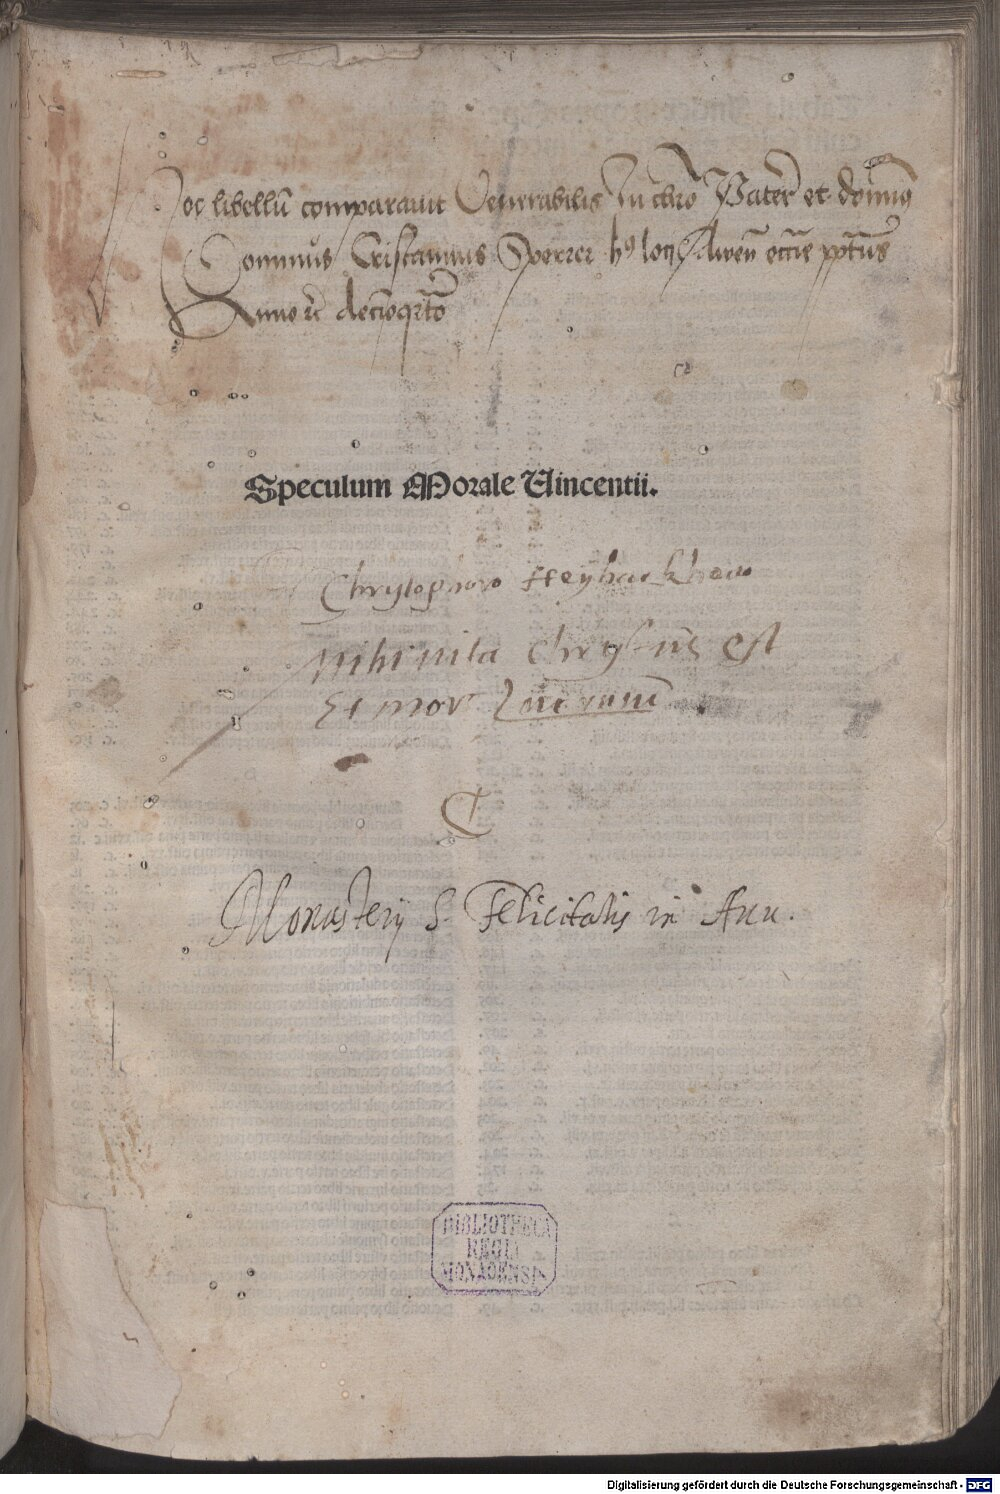 Hoc libellū comparauit Venerabilis In chro Pater et domin⁹
Dominus Cristannus h⁹ loci
Anno
Speculum Morale Vincentii.
mihi uita Chrystus est
Et mors Lucrum
Monasterij S. Felicitatis in Auu.
BIBLIOTHECA
REGIA
MONACENSIS
Digitalisierung gefördert durch die Deutsche Forschungsgemeinschaft - DFG